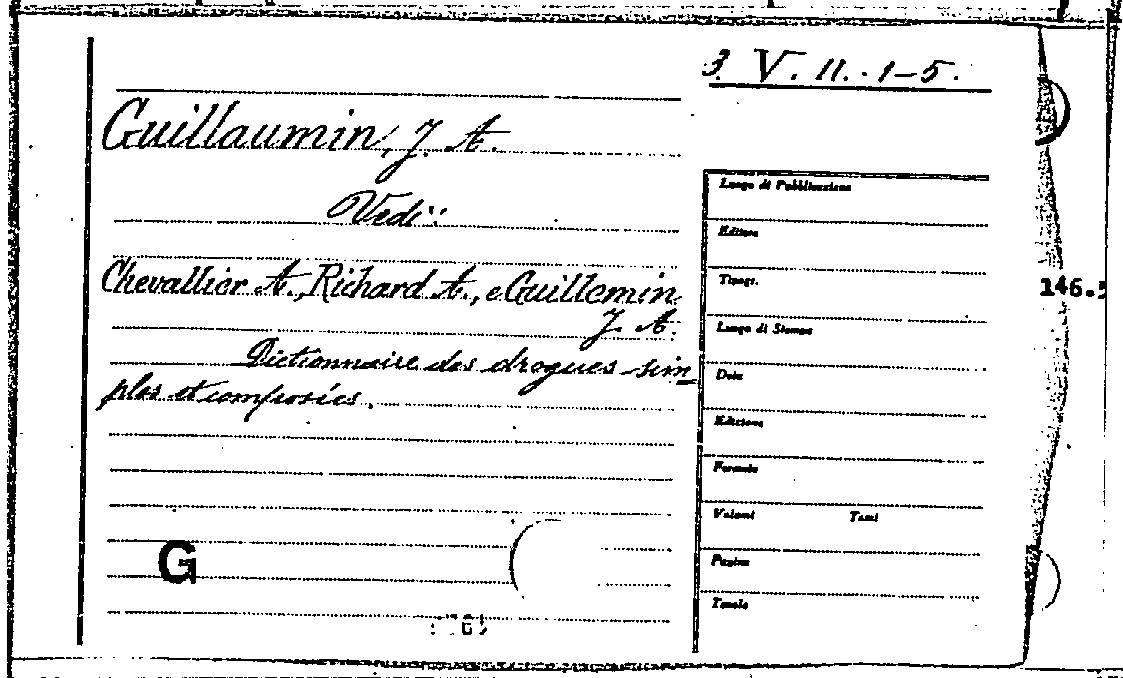 3. V. 11. 1-5.
Guillaumin, J. A.
Vedi:
Chevallier A., Richard A., e Guillemin
J. A.
Dictionnaire des drogues sim=
ples et composées.
Luogo di Pubblicazione
Editore
Tipogr.
146.
Luogo di Stampa
Data
Edizione
Formato
Volumi Tomi
Pagine
Tavole
G